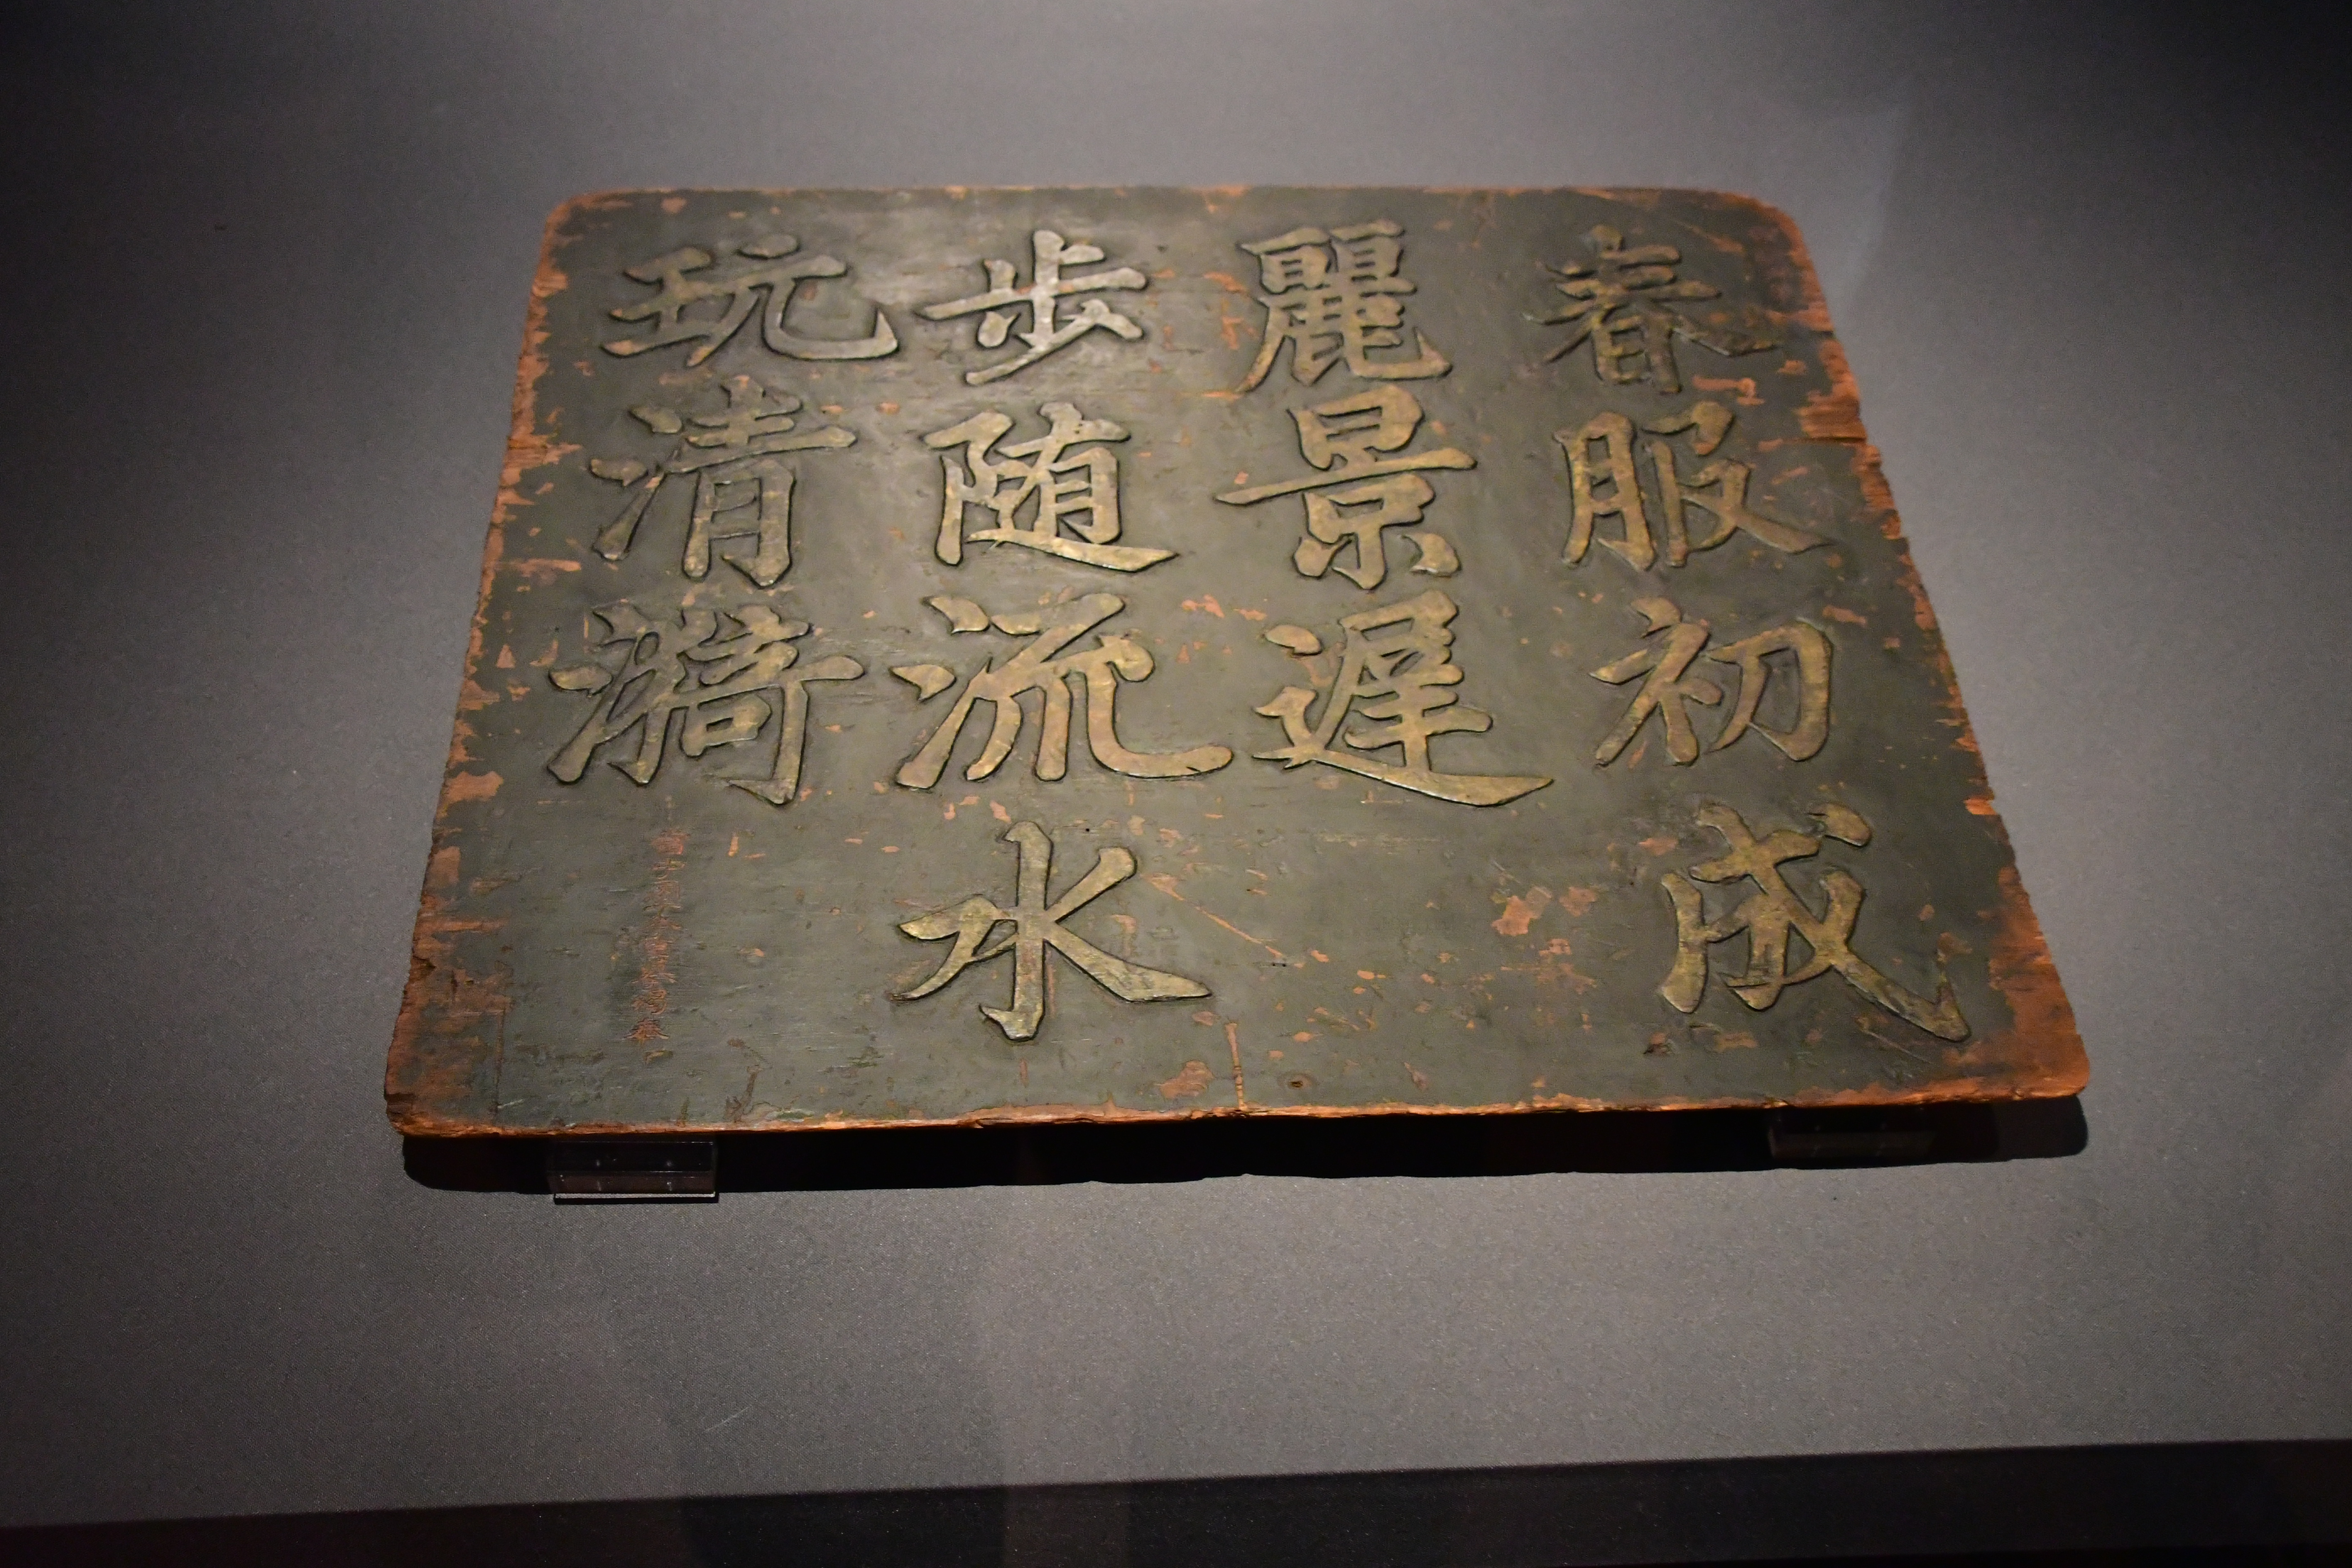 春服初成
麗景遲
步随流水
玩清漪